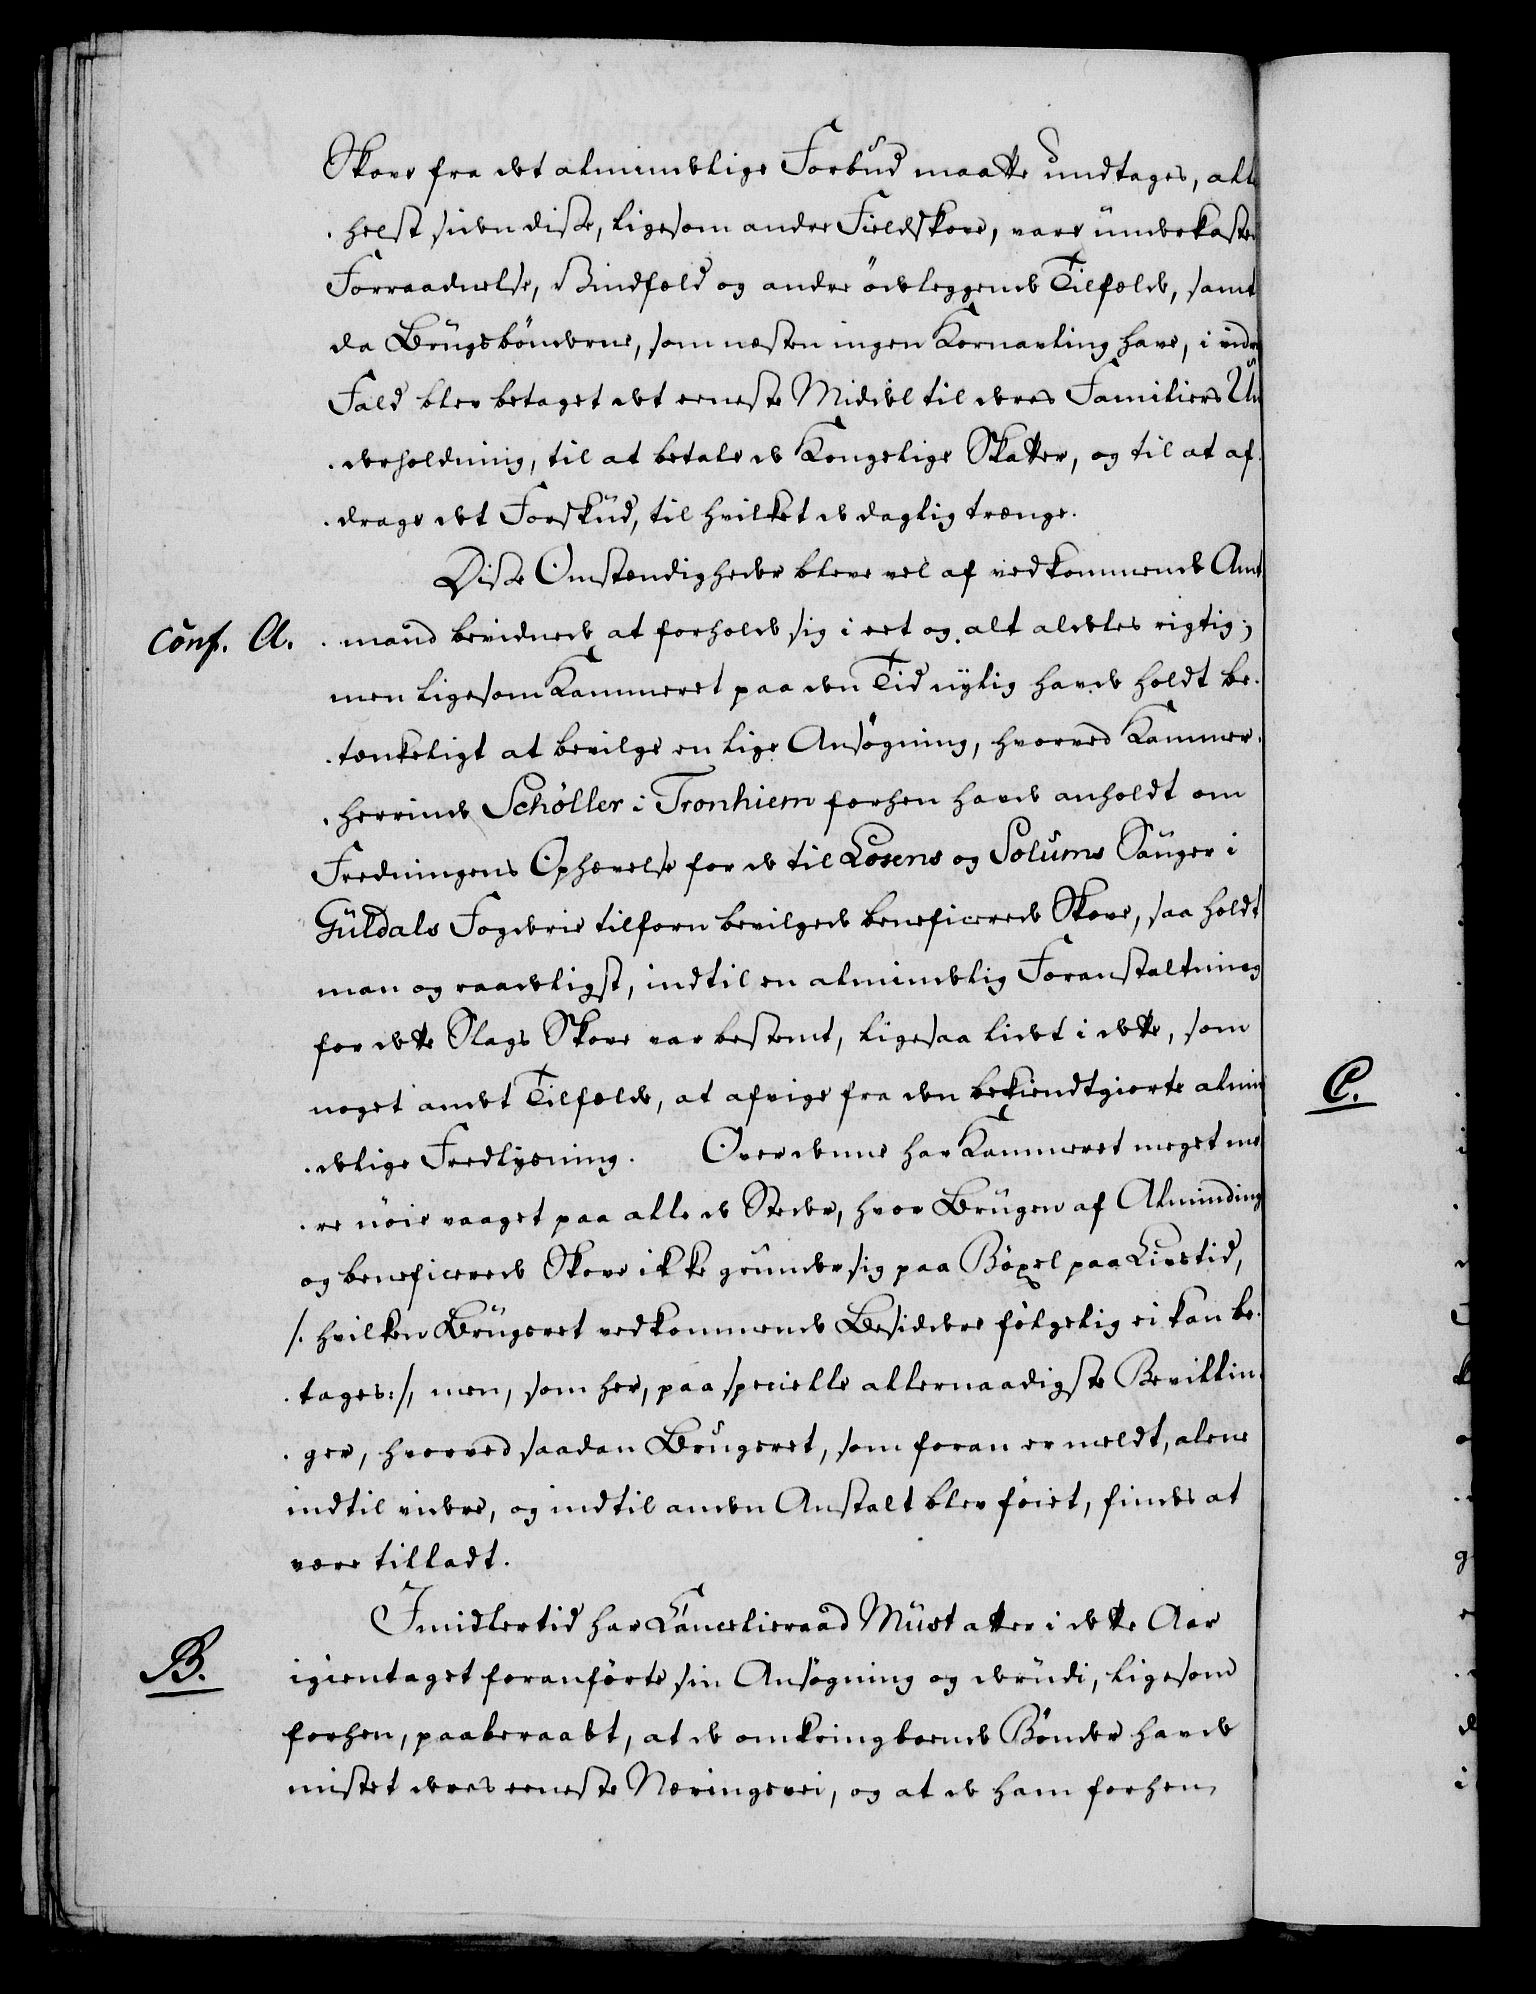 Skove fra det almindelige Forbud maatte undtages, aller
helst siden disse, ligesom andre Fieldskove, vare underkastede
Forraadnelse, Vindfæld og andre ödeleggende Tilfælde, samt
da Brugsbönderne, som næsten ingen Kornavling have, i vidrig
Fald blev betaget det eeneste Middel til deres Familiers Un
derholdning, til at betale de Kongelige Skatter, og til at af-
drage det Forskud, til hvilket de daglig trænge.
Disse Omstændigheder bleve vel af vedkommende Amt
conf. A.
mand bevidnede at forholde sig i eet og alt aldeles rigtig;
men ligesom Kammeret paa den Tid nylig havde holdt be-
tænkeligt at bevilge en lige Ansögning, hvorved Kammer-
herrinde Schöller i Tronhiem forhen havde anholdt om
Fredningens Ophævelse for de til Losens og Solums Sauger i
Guldals Fogderie tilforn bevilgede beneficerede Skove, saa holdt
man og raadeligst, indtil en almindelig Foranstaltning
for dette Slags Skove var bestemt, ligesaa lidet i dette, som
noget andet Tilfælde, at afvige fra den bekiendtgiorte almin
delige Fredlysning. Over denne har Kammeret meget me
re nöie vaaget paa alle de Steder, hvor Brugen af Alminding
og beneficerede Skove ikke grunder sig paa Böxel paa Livstid,
/: hvilken Brugsret vedkommende Besiddere fölgelig ei kan be-
tages :/, men, som her, paa specielle allernaadigste Bevillin-
ger, hvorved saadan Brugsret, som foran er meldt, alene
indtil videre, og indtil anden Anstalt blev föiet, findes at
være tilladt.
Imidlertid har Cancelieraad Must atter i dette Aar
B.
igientaget foranförte sin Ansögning og derudi, ligesom
forhen, paaberaabt, at de omkringboende Bönder havde
mistet deres eeneste Næringsvei, og at de ham forhen
C.